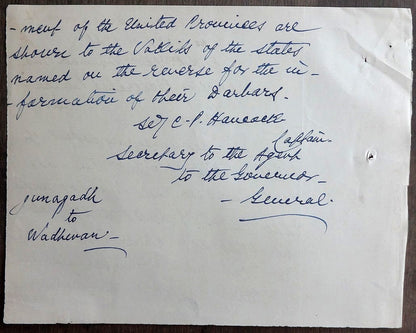 -ment of the United Provinces are
shown to the Vakils of the states
named on the reverse for the in-
-formation of their Darbars.
Sd/ C. P. Hancock
Captain.
Secretary to the Agent
to the Governor-
- General.
Junagadh
to
Wadhwan -